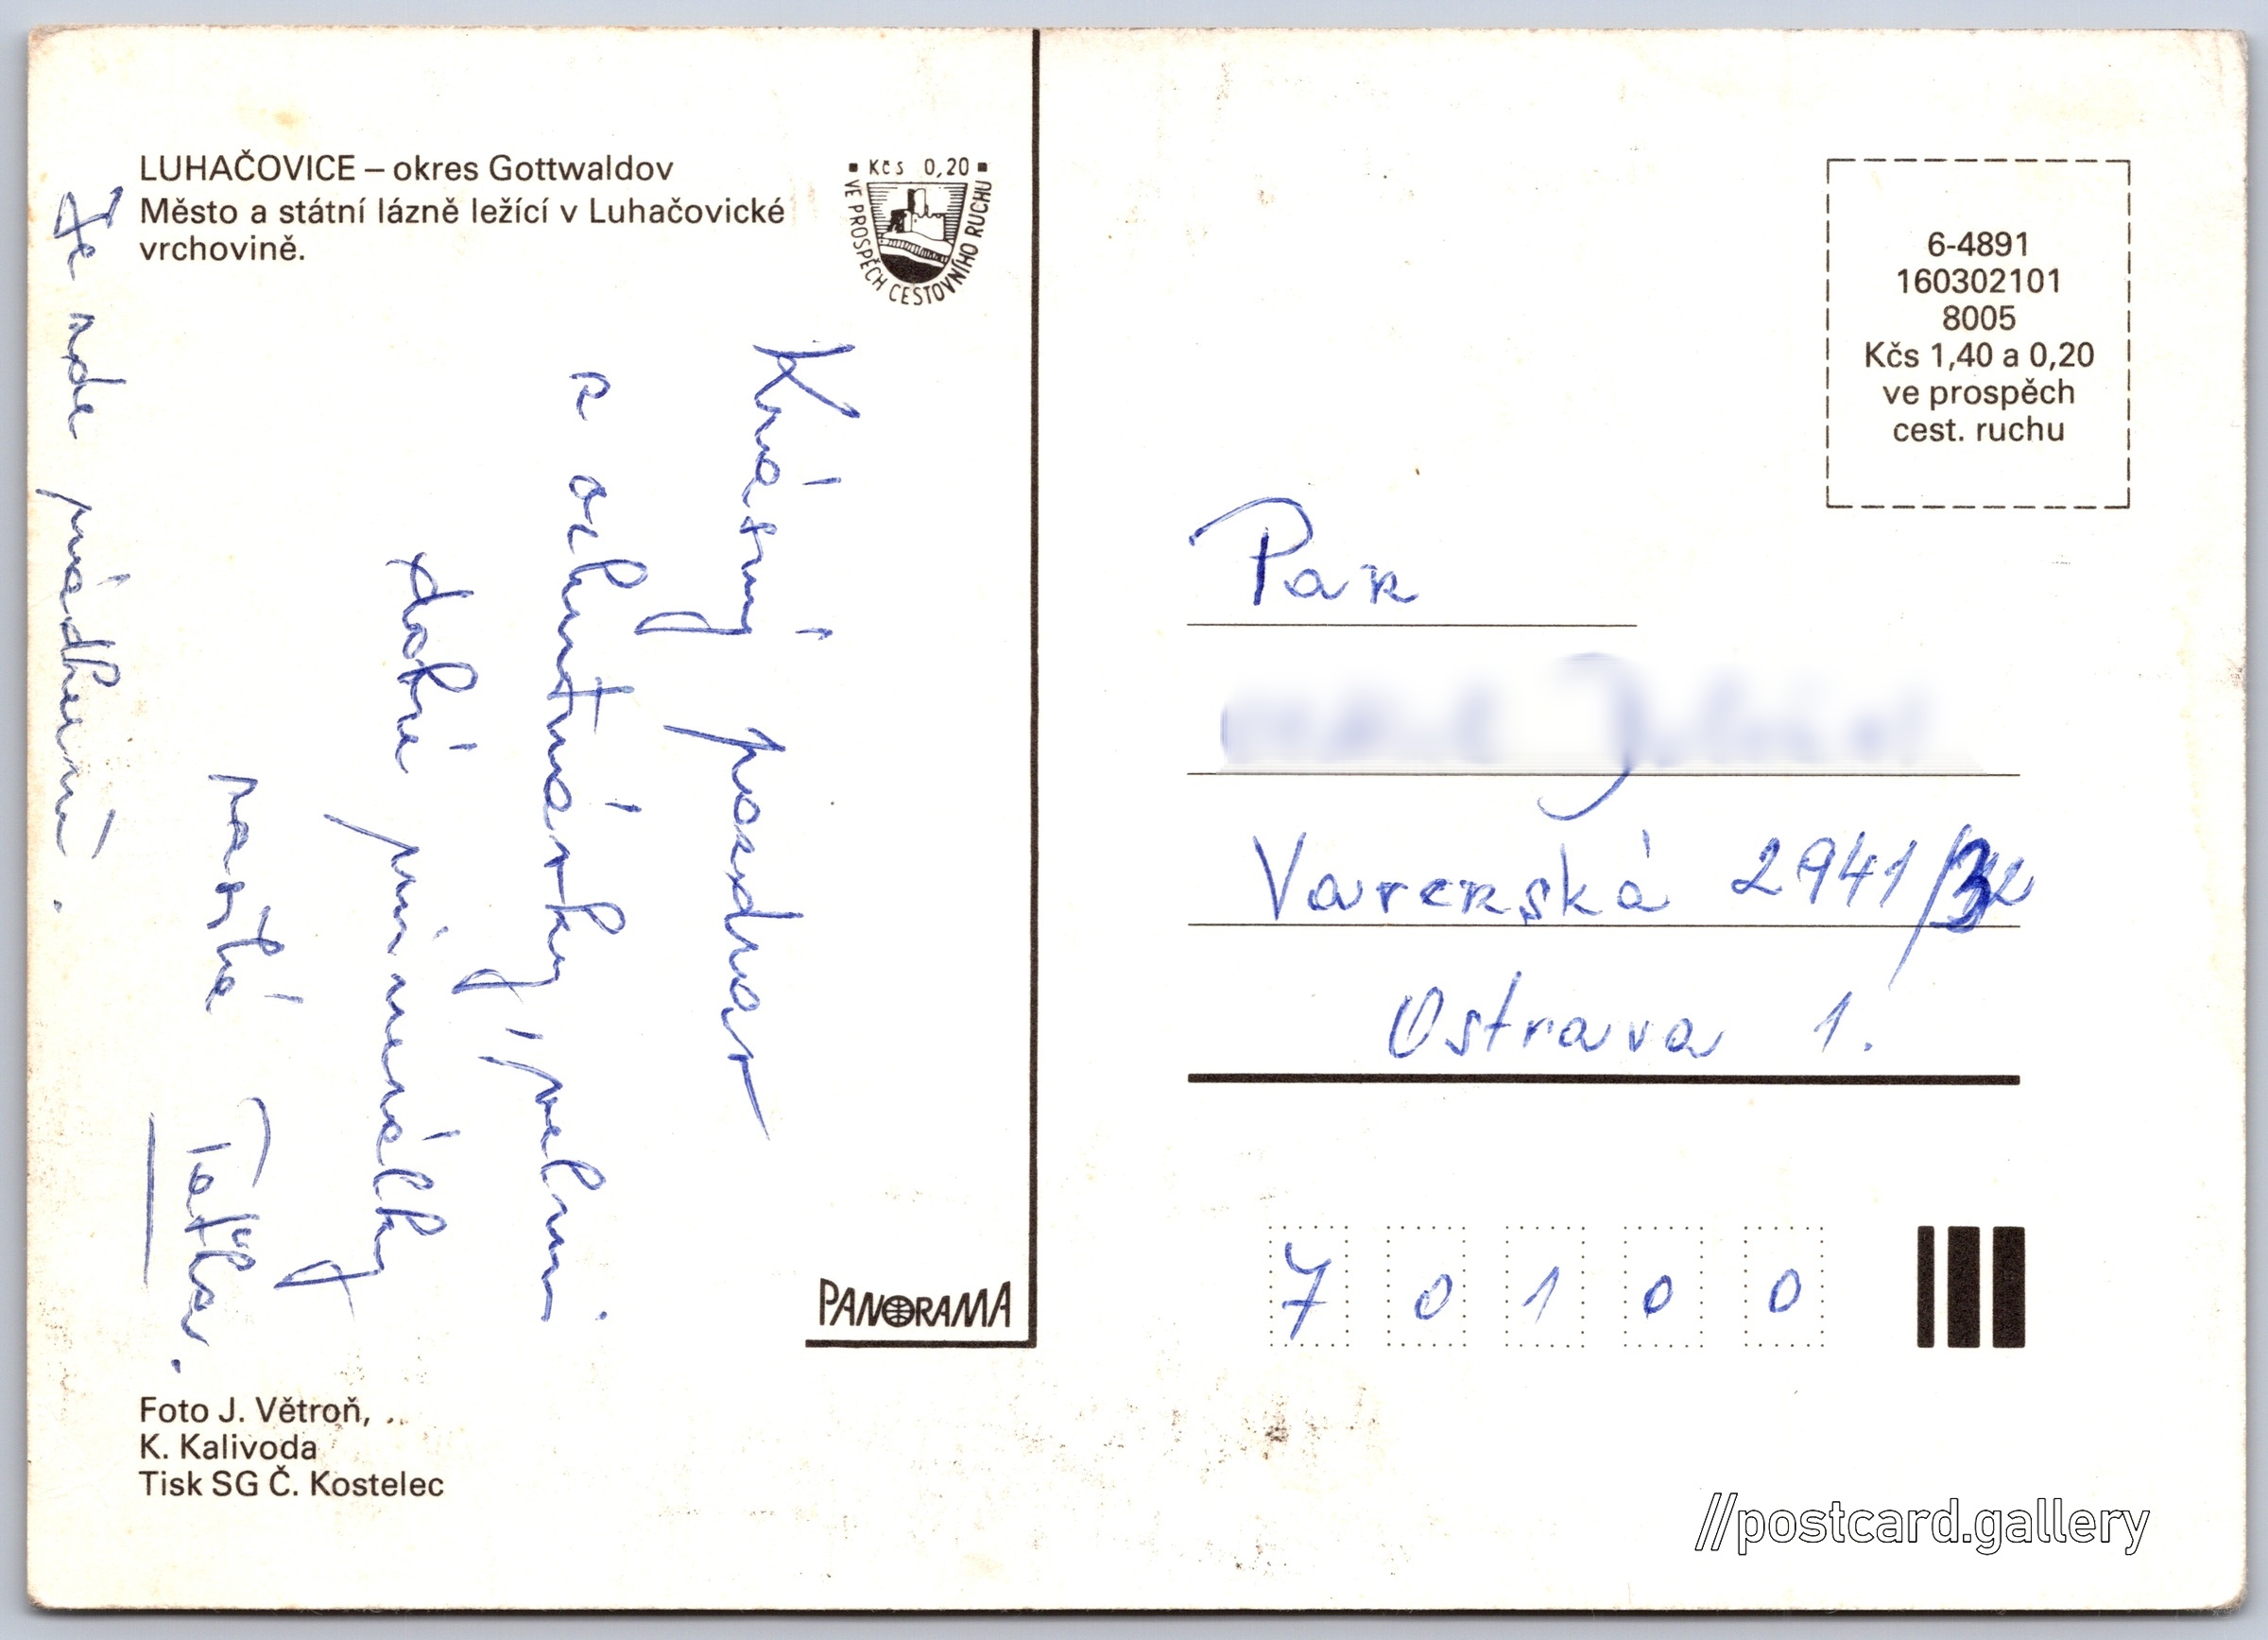 LUHAČOVICE – okres Gottwaldov
Město a státní lázně ležící v Luhačovické
vrchovině.
▪ Kčs 0,20 ▪
VE PROSPĚCH CESTOVNÍHO RUCHU
Krásný pozdrav
a ochutnávky, velmi
dobré prý minerálky
posílá
Taťka.
Je zde nádherně.
PANORAMA
Foto J. Větroň,
K. Kalivoda
Tisk SG Č. Kostelec
6-4891
160302101
8005
Kčs 1,40 a 0,20
ve prospěch
cest. ruchu
Pan
Varenská 2941/
Ostrava 1.
7 0 1 0 0
//postcard.gallery